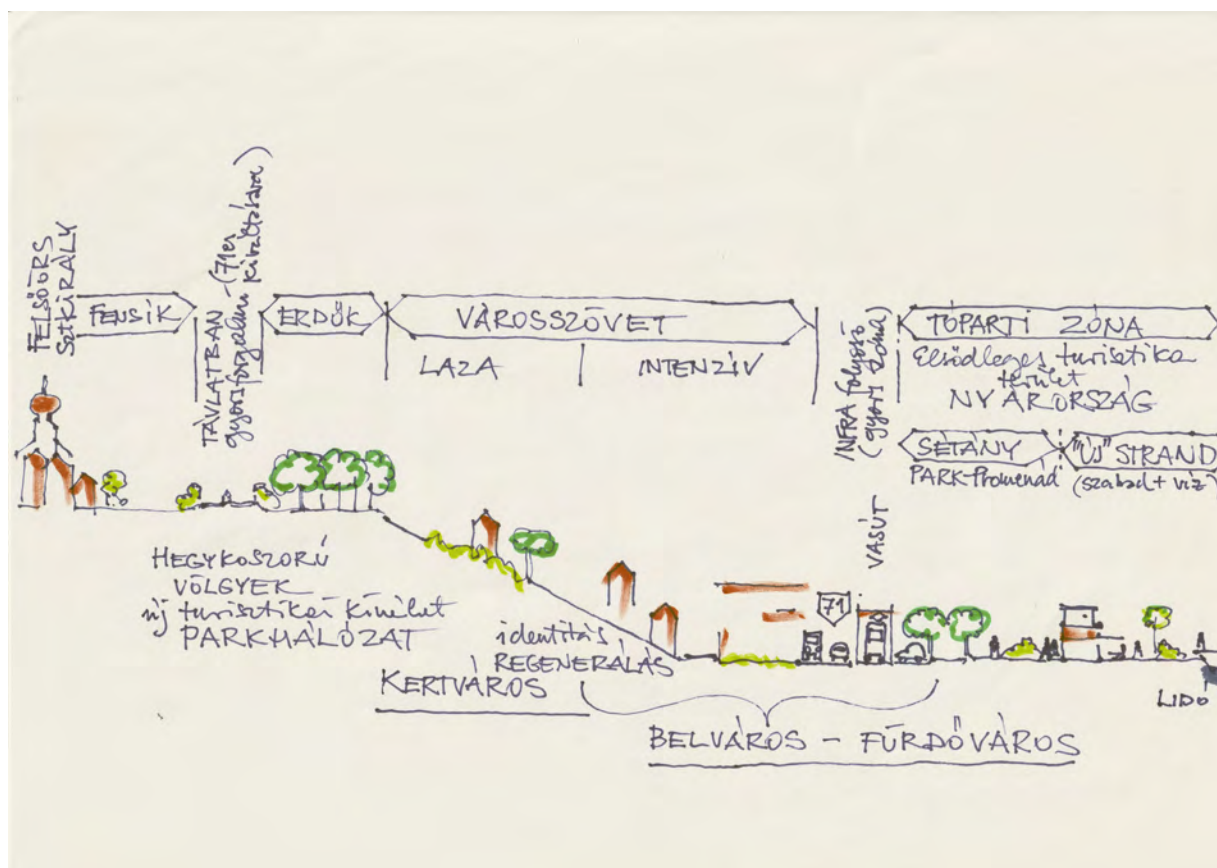 FELSŐÖRS
SZTKIRÁLY
FENSÍK
TÁVLATBAN
gyorsforgalmi - (71es
kiváltására)
ERDŐK
VÁROSSZÖVET
LAZA
INTENZÍV
INFRA folyosó
(gyors zóna)
VASÚT
TÓPARTI ZÓNA
Elsődleges turisztika
terület
NYÁRORSZÁG
SÉTÁNY
PARK-Promenád
"ÚJ" STRAND
(szabad + víz)
HEGYKOSZORÚ
VÖLGYEK
új turisztikai kínálat
PARKHÁLÓZAT
identitás
REGENERÁLÁS
KERTVÁROS
71
LIDÓ
BELVÁROS - FÜRDŐVÁROS